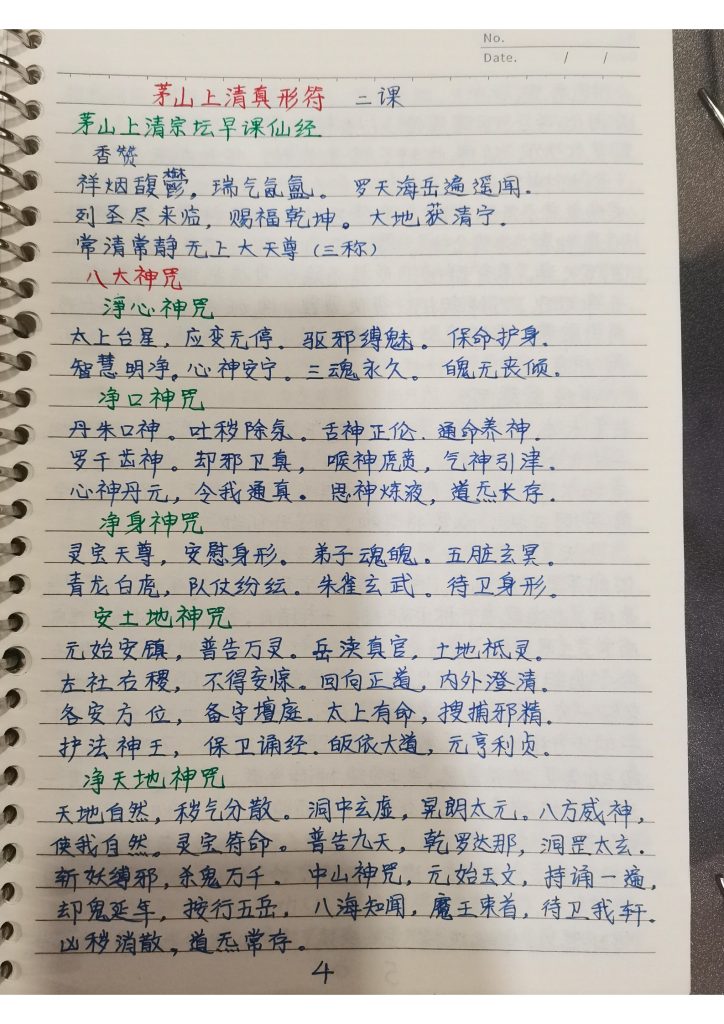 No.
Date. / /
茅山上清真形符 二课
茅山上清宗坛早课仙经
香赞
祥烟馥鬱。瑞气氤氲。罗天海岳遍遥闻.
列圣尽来临,赐福乾坤。大地获清宁.
常清常静无上大天尊(三称)
八大神咒
淨心神咒
太上台星,应变无停.驱邪缚魅。保命护身.
智慧明净。心神安宁.三魂永久。魄无丧倾.
净口神咒
丹朱口神。吐秽除氛。舌神正伦.通命养神.
罗千齿神。却邪卫真,喉神虎贲,气神引津.
心神丹元,令我通真。思神炼液,道炁长存.
净身神咒
灵宝天尊,安慰身形。弟子魂魄。五脏玄冥.
青龙白虎,队仗纷纭.朱雀玄武.待卫身形.
安土地神咒
元始安镇,普告万灵。岳渎真官,土地祗灵。
左社右稷,不得妄惊.回向正道,内外澄清.
各安方位,备守壇庭.太上有命,搜捕邪精.
护法神王,保卫诵经.皈依大道,元亨利贞.
净天地神咒
天地自然,秽气分散。洞中玄虚,晃朗太元。八方威神,
使我自然。灵宝符命。普告九天,乾罗达那,洞罡太玄.
斩妖缚邪,杀鬼万千.中山神咒,元始玉文,持诵一遍,
却鬼延年,按行五岳,八海知闻,魔王束首,待卫我轩.
凶秽消散,道炁常存.
4